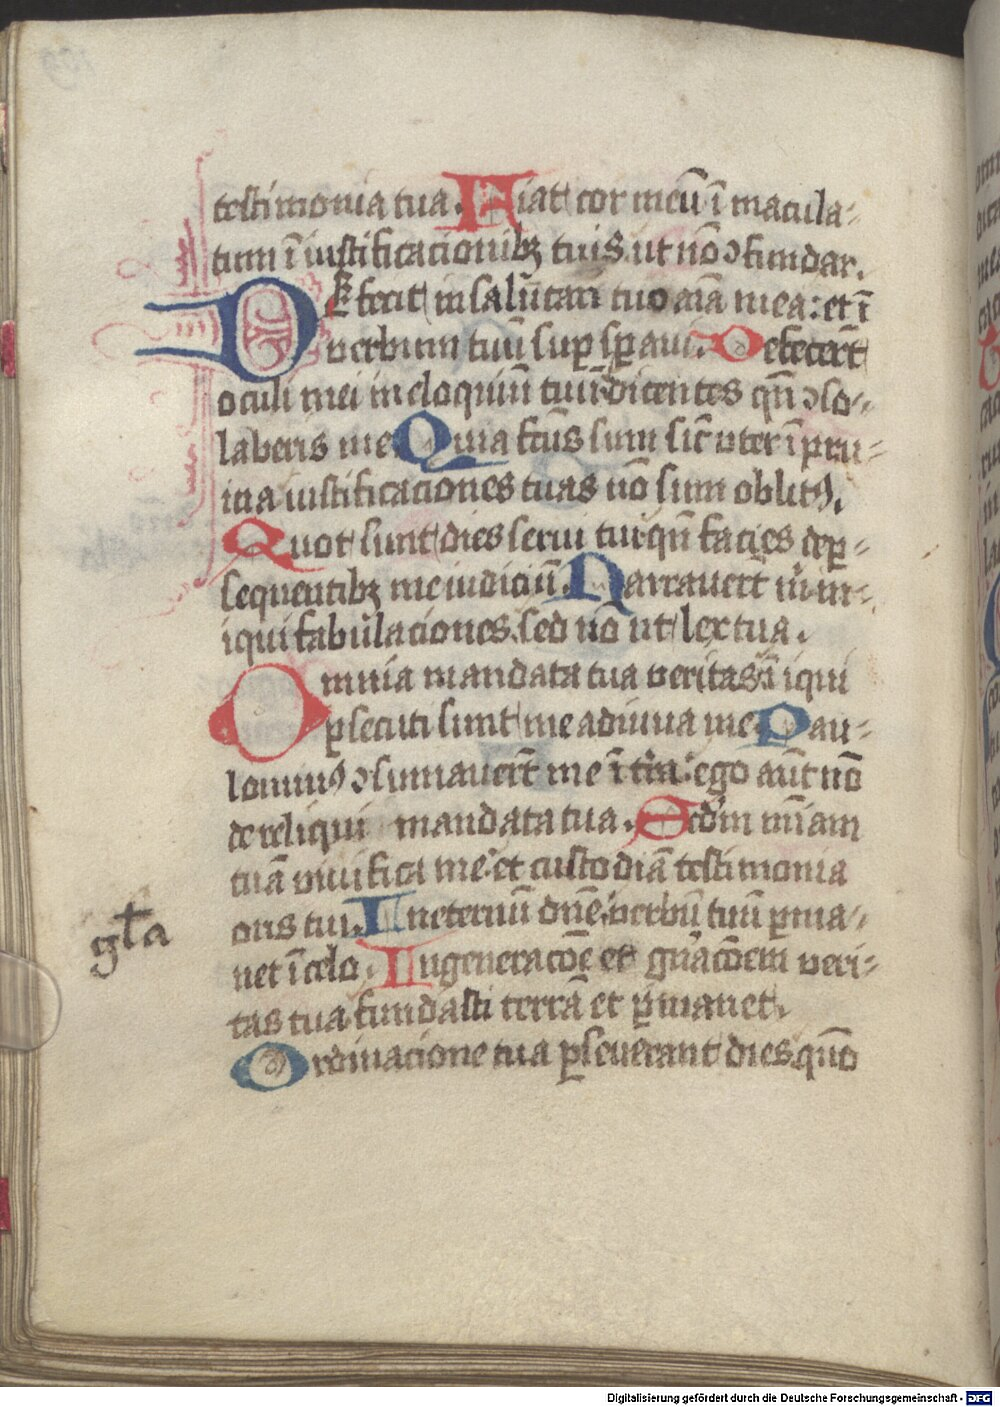 testimonia tua. Fiat cor meū ī macula-
tum ī iustificacionibꝫ tuis ut nō ↄfundar.
DEfecit in salutari tuo aīa mea: et ī
verbum tuū suꝑ sꝑaui. Defecert̄
oculi mei in eloquiū tuū dicentes qn̄ ↄso-
laberis me Quia fc̄us sum sic̄ uter ī pru-
ina iustificaciones tuas nō sum oblitꝰ.
Quot sunt dies serui tui qn̄ facies de ꝑ-
sequentibꝫ me iudiciū. Narrauert̄ m̄ in-
iqui fabulaciones sed nō ut lex tua.
Omnia mandata tua veritas īiqui
ꝑsecuti sunt me adiuua me Pau-
lominꝰ ↄsumauert̄ me ī t̄ra: ego aūt nō
dereliqui mandata tua. Scd̄m mīam
tuā viuifica me: et custodiā testimonia
oris tui. In eternū dn̄e: verbū tuū ꝑma-
net ī celo. In generacōe et gn̄acōem veri-
tas tua fundasti terrā et ꝑmanet.
Ordinacione tua ꝑseuerant dies qm̄o
gl̄a
Digitalisierung gefördert durch die Deutsche Forschungsgemeinschaft - DFG